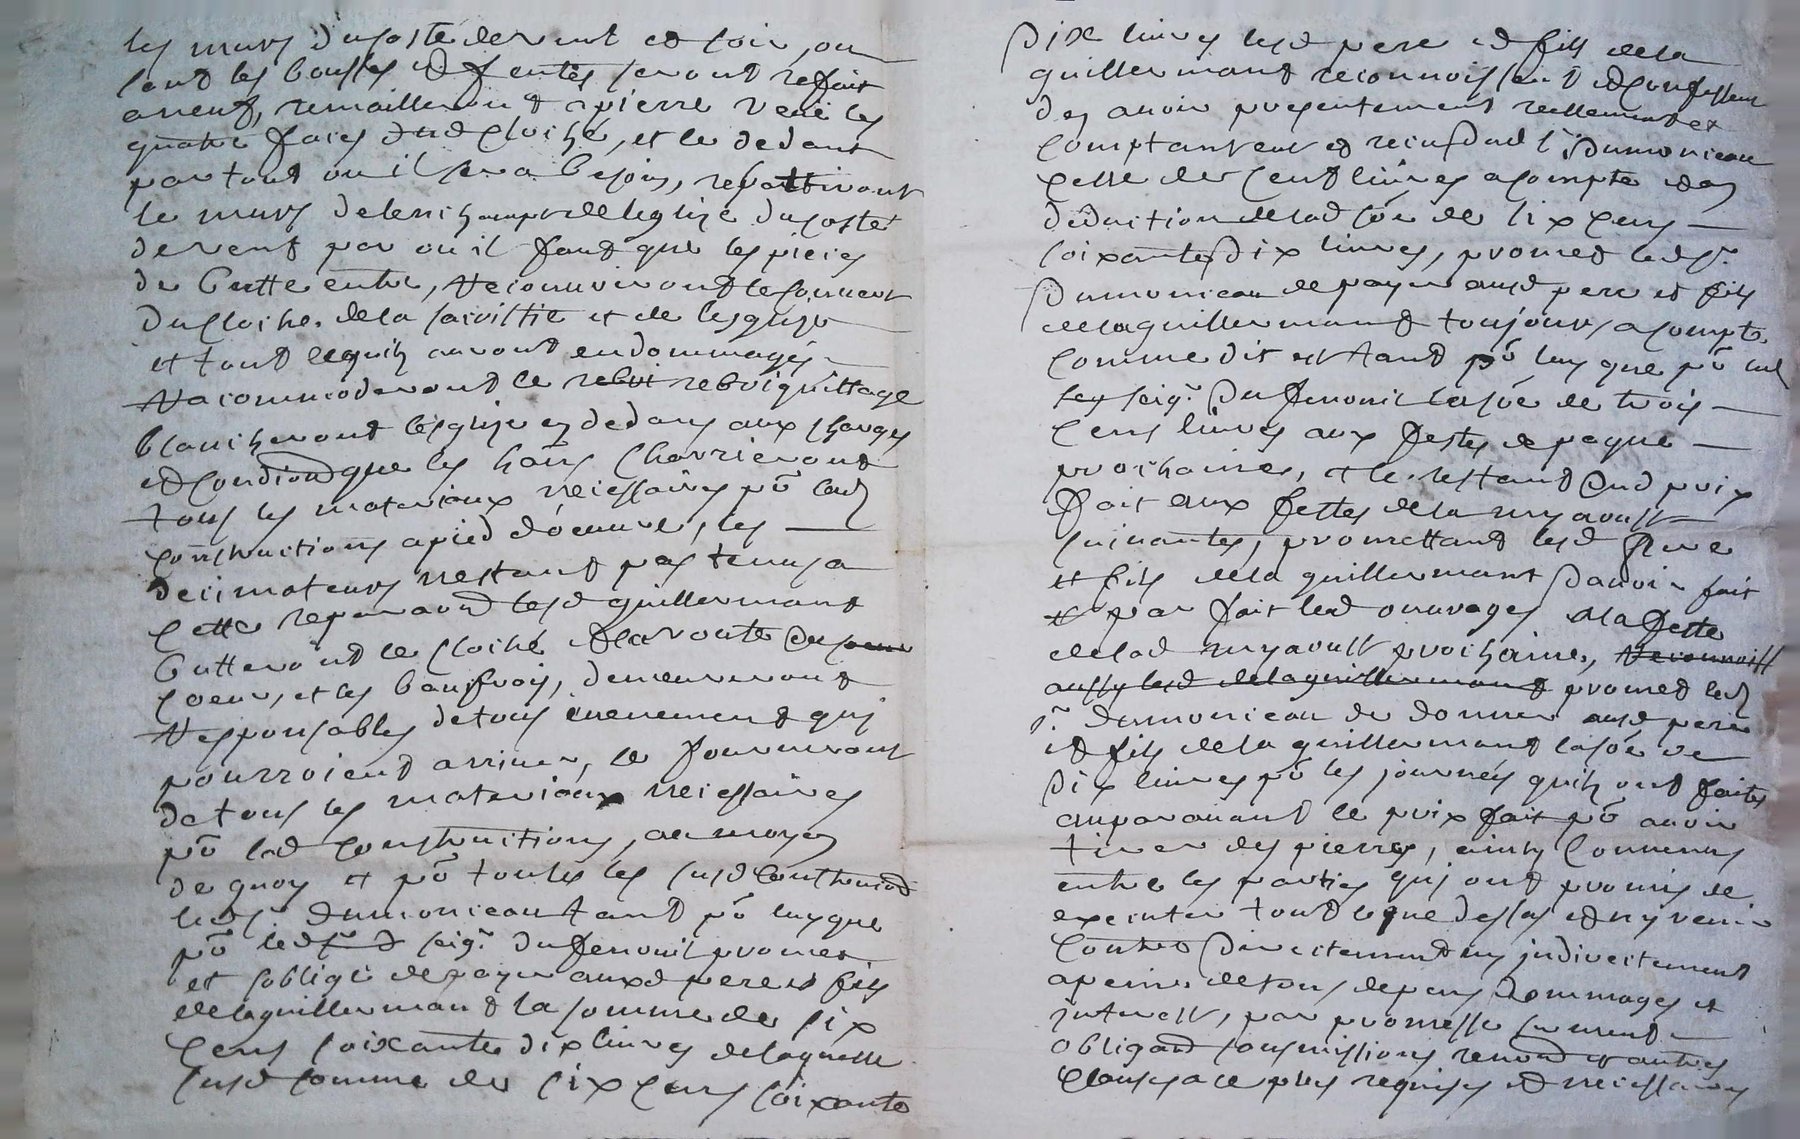 les murs du costé de vent et soir, ou
sont les bousses et fentes seront refait
aneuf, remailleront a pierre veüe les
quatre faces dud cloché, et le dedans
par tout ou il sera besoin, rebattiront
le murs de lenchamps de leglize du costé
de vent par ou il faut que les pieces
de butte entre, Recouvriront le couvert
du cloche, de la sacristie et de lesglize
et tout ce quilz auront endommagés
Racommoderont le rebri rebriquittage
blanchiront lesglize en dedans aux charges
et condiond que les hans charrieront
tous les materiaux necessaires po lad
constructions a pied doeuvre, les
decimateurs nestant pas tenus a
cette reparaond lesd guillermant
butteront le cloché et la voute du
coeur, et les baufrois, demeureront
Responsables de tous evenement quj
pourroient arriver, se fourniront
de tous les materiaux necessaires
po lesd constructions, au moyen
de quoy et po toutes les susd
led sr dumonceau tant po luy que
po led seigr du fenouil promet
et soblige de payer auxd pere et fils
delaguillermant la somme de six
cens soixante dix livres de laquelle
susd somme de six cens soixante
Dix livres lesd pere et fils dela
guillermant reconnoissent et confessent
den avoir presentement reellement et
comptant eut et receu dud sr Dumonceau
celle de cent livres acompte et en
deduction de lad soe de six cens
soixante Dix livres, promet led sr
Dumonceau de payer ausd pere et fils
delaguillermant toujours acompte
comme dit est tant po luy que po led
seigr Du fenouil lasoe de trois
cens livres aux festes de paque
prochaines, et le restant dud prix
fait aux festes de la my aoust
suivantes, promettant lesd pere
et fils dela guillermant Davoir fait
et par fait lesd ouvrages a la feste
de lad my aoust prochaine, Reconnoiss
aussy lesd delaguillermant promet led
sr dumonceau de donner ausd pere
et fils dela guillermant lasoe de
Dix livres po les journées quilz ont faites
auparavant le prix fait po avoir
tirer des pierres, ainsy convenus
entre les parties quj ont promis de
executer tout ce que dessus et ny venir
contre Directement ny indirectement
a peine de tous depens Dommages et
interest, par promesse serment
obligaõn soumissions renonõn et autres
clauses a ce plus requises et necessaires